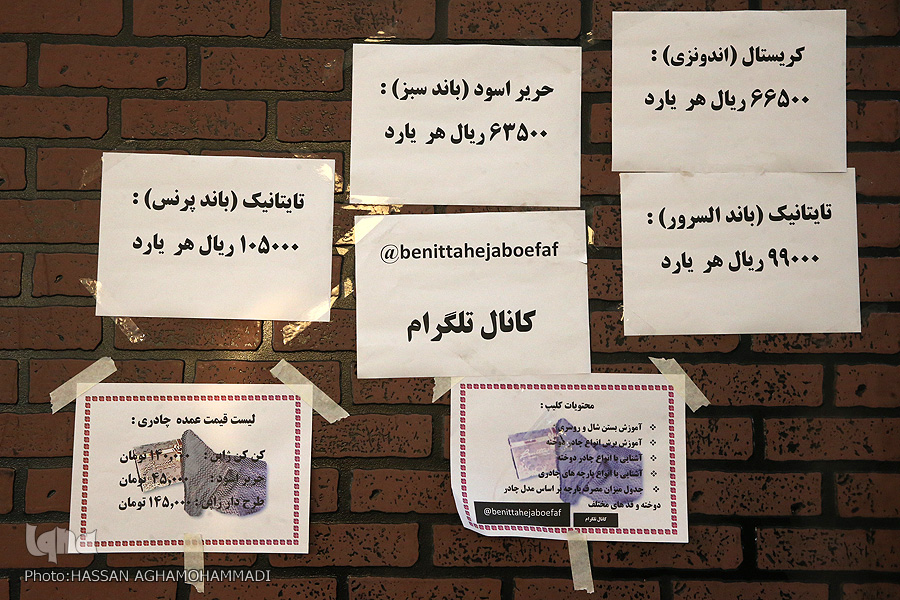 کریستال (اندونزی) :
۶۶۵۰۰ ریال هر یارد
حریر اسود (باند سبز) :
۶۳۵۰۰ ریال هر یارد
تایتانیک (باند السرور) :
۹۹۰۰۰ ریال هر یارد
تایتانیک (باند پرنس) :
۱۰۵۰۰۰ ریال هر یارد
@benittahejaboefaf
کانال تلگرام
محتویات کلیپ :
آموزش بستن شال و روسری
آموزش برش انواع چادر دوخته
آشنایی با انواع چادر دوخته
آشنایی با انواع پارچه های چادری
جدول میزان مصرف پارچه بر اساس مدل چادر
دوخته و قد های مختلف
کانال تلگرام
@benittahejaboefaf
لیست قیمت عمده چادری :
کن کن ژاپن : ۱۴۰,۰۰۰ تومان
حریر اسود : ۴۵,۰۰۰ تومان
طرح دار : ۱۴۵,۰۰۰ تومان
iqna
Photo:HASSAN AGHAMOHAMMADI